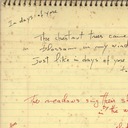 In days of yore
The chestnut trees came
blossom in my wind
Just like in days of yore
The meadows sing their s
by the w